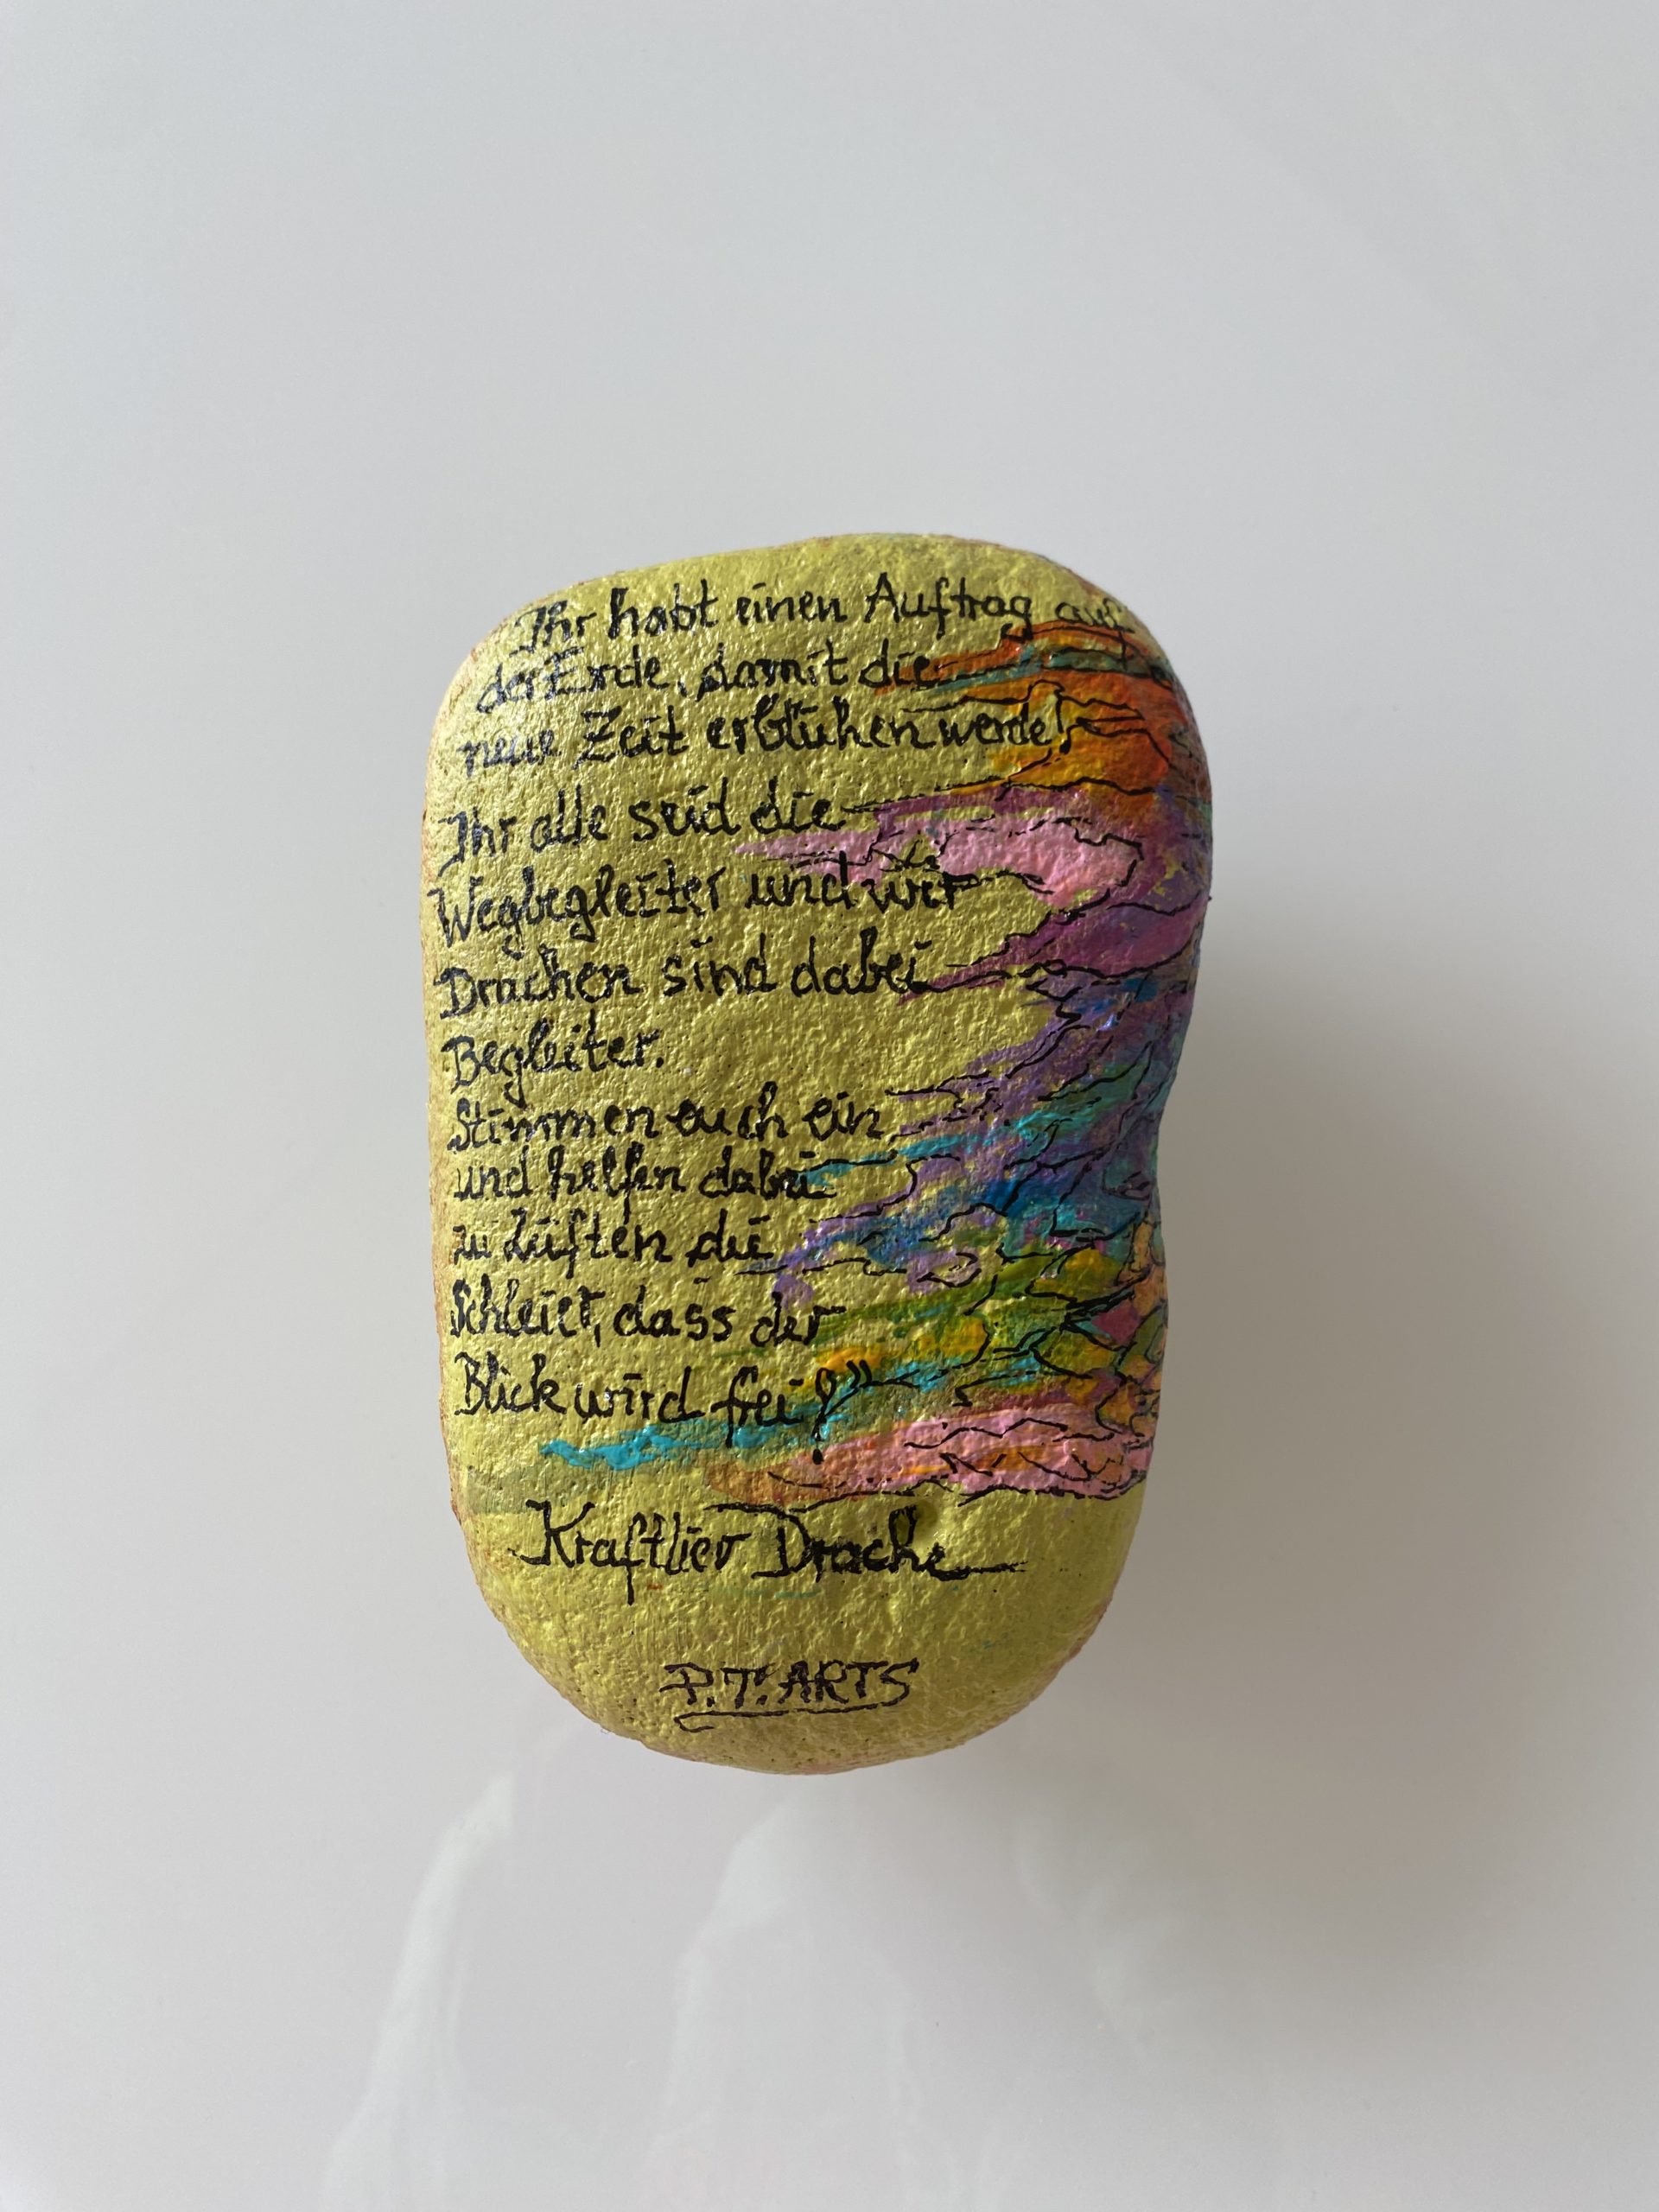 Ihr habt einen Auftrag auf
der Erde, damit die
neue Zeit erblühen werde!
Ihr alle seid die
Wegbegleiter und wir
Drachen sind dabei
Begleiter.
Stimmen euch ein
und helfen dabei
zu Lüften die
Schleier, dass der
Blick wird frei!"
Krafttier Drache
P.T. ARTS